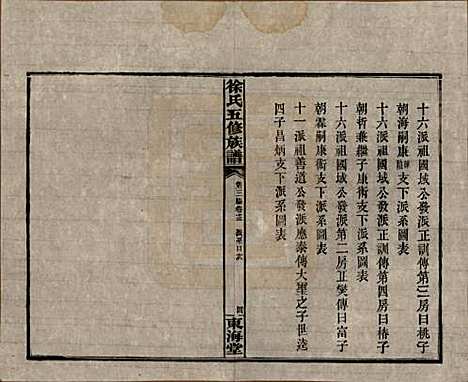 十六派祖國域公發派正訓傳第三房曰桃子
朝海嗣康 支下派系圖表
十六派祖國域公發派正訓傳第四房曰椿子
朝哲兼繼子康衢支下派系圖表
十六派祖國域公發派第二房正樊傳曰富子
朝 嗣康衢支下派系圖表
十一派祖善道公發派應泰傳大 之子世逵
四子昌炳支下派系圖表
徐氏五修族譜
東海堂